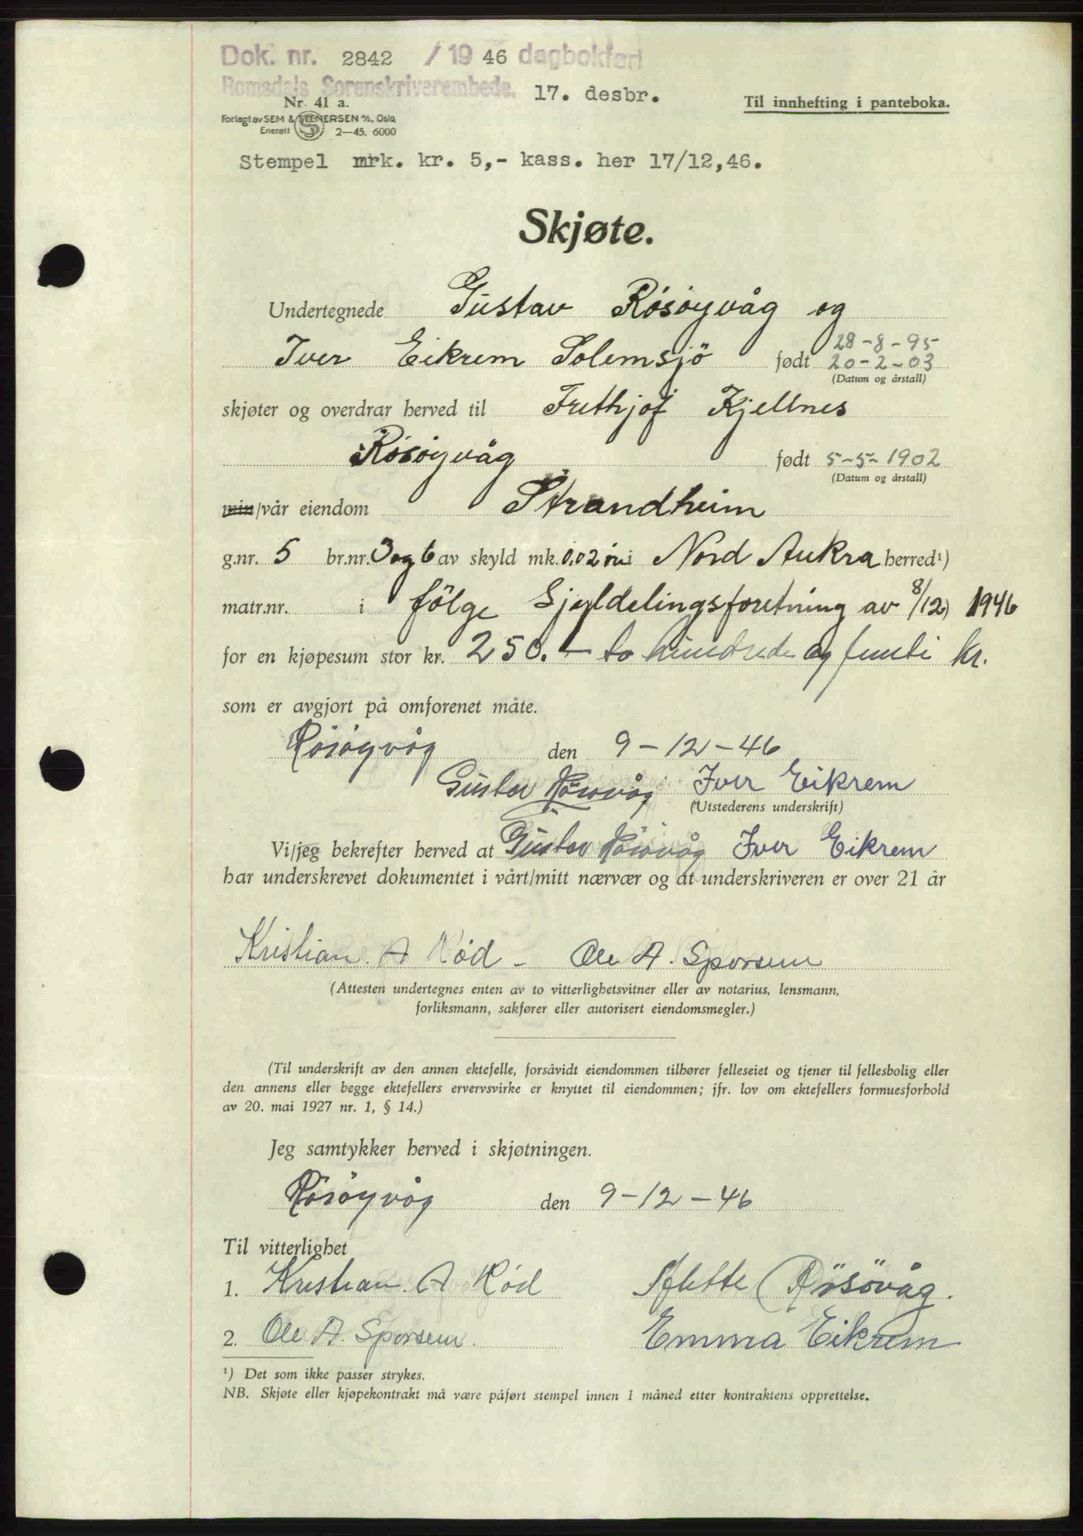 Dok. nr. 2842 / 19 46 dagbokført
Romsdals Sorenskriverembede. 17. desbr.
Nr. 41 a.
Til innhefting i panteboka.
Forlagt av SEM & STENERSEN A/S, Oslo
Enerett 2—45. 6000
Stempel mrk. kr. 5,- kass. her 17/12,46.
Skjøte.
Undertegnede Gustav Rösöyvåg og
28-8-95
Iver Eikrem Solemsjö født 20-2-03
(Datum og årstall)
skjøter og overdrar herved til Frithjof Kjellnes
Rösöyvåg født 5-5-1902
(Datum og årstall)
min/vår eiendom Strandheim
g.nr. 5 br.nr. 3 og 6 av skyld mk. 0.02 i Nord Aukra herred¹)
matr.nr. i følge Skjyldelingsforetning av 8/12 1946
for en kjøpesum stor kr. 250.- to hundrede og femti kr.
som er avgjort på omforenet måte.
Rösöyvåg den 9-12-46
Gustav Rösövåg Iver Eikrem
(Utstederens underskrift)
Vi/jeg bekrefter herved at Gustav Rösövåg Iver Eikrem
har underskrevet dokumentet i vårt/mitt nærvær og at underskriveren er over 21 år
Kristian A Rød - Ole A. Sporsem
(Attesten undertegnes enten av to vitterlighetsvitner eller av notarius, lensmann,
forliksmann, sakfører eller autorisert eiendomsmegler.)
(Til underskrift av den annen ektefelle, forsåvidt eiendommen tilhører felleseiet og tjener til fellesbolig eller
den annens eller begge ektefellers ervervsvirke er knyttet til eiendommen; jfr. lov om ektefellers formuesforhold
av 20. mai 1927 nr. 1, § 14.)
Jeg samtykker herved i skjøtningen.
Rösöyvåg den 9-12-46
Til vitterlighet
1. Kristian A Rød Mette Rösövåg.
2. Ole A. Sporsem. Emma Eikrem
¹) Det som ikke passer strykes.
NB. Skjøte eller kjøpekontrakt må være påført stempel innen 1 måned etter kontraktens opprettelse.